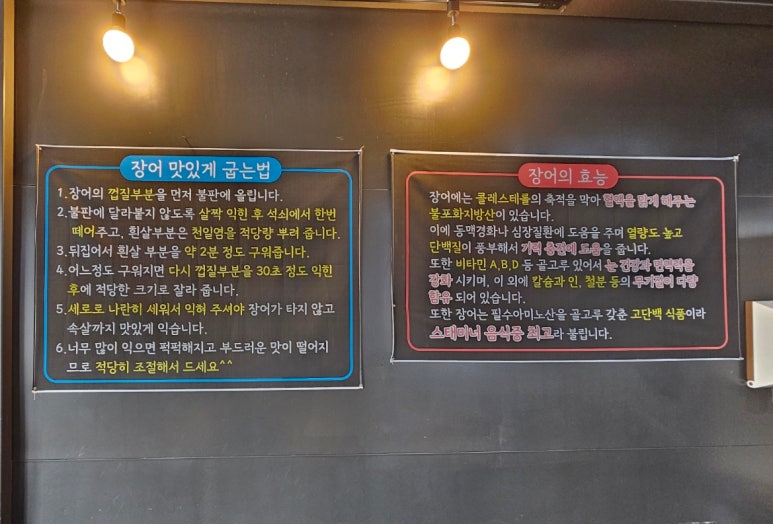 장어 맛있게 굽는법
1.장어의 껍질부분을 먼저 불판에 올립니다.
2.불판에 달라붙지 않도록 살짝 익힌 후 석쇠에서 한번
떼어주고, 흰살부분은 천일염을 적당량 뿌려 줍니다.
3.뒤집어서 흰살 부분을 약 2분 정도 구워줍니다.
4.어느정도 구워지면 다시 껍질부분을 30초 정도 익힌
후에 적당한 크기로 잘라 줍니다.
5.세로로 나란히 세워서 익혀 주셔야 장어가 타지 않고
속살까지 맛있게 익습니다.
6.너무 많이 익으면 퍽퍽해지고 부드러운 맛이 떨어지
므로 적당히 조절해서 드세요^^
장어의 효능
장어에는 콜레스테롤의 축적을 막아 혈액을 맑게 해주는
불포화지방산이 있습니다.
이에 동맥경화나 심장질환에 도움을 주며 열량도 높고
단백질이 풍부해서 기력 충전에 도움을 줍니다.
또한 비타민 A,B,D 등 골고루 있어서 눈 건강과 면역력을
강화 시키며, 이 외에 칼슘과 인, 철분 등의 무기질이 다량
함유 되어 있습니다.
또한 장어는 필수아미노산을 골고루 갖춘 고단백 식품이라
스태미너 음식중 최고라 불립니다.